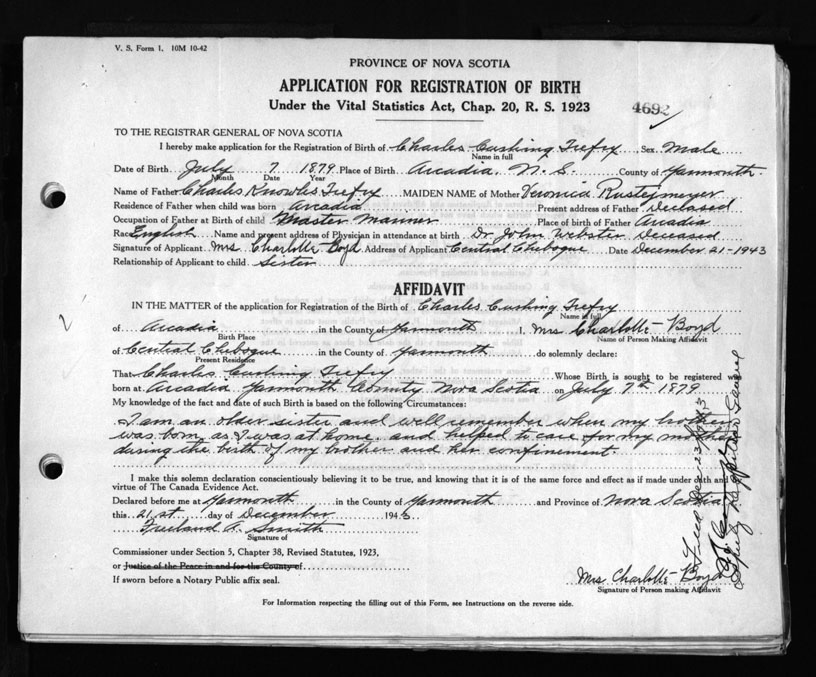 V. S. Form 1. 10M 10-42
PROVINCE OF NOVA SCOTIA
APPLICATION FOR REGISTRATION OF BIRTH
Under the Vital Statistics Act, Chap. 20, R. S. 1923
4692
TO THE REGISTRAR GENERAL OF NOVA SCOTIA
I hereby make application for the Registration of Birth of Charles Cushing Trefry, Sex Male
Name in full
Date of Birth July 7 1879 Place of Birth Arcadia, N. S. County of Yarmouth
Month Date Year
Name of Father Charles Knowles Trefry MAIDEN NAME of Mother Veronica Rustejmeyer
Residence of Father when child was born Arcadia Present address of Father Deceased
Occupation of Father at Birth of child Master Mariner Place of birth of Father Arcadia
Race English Name and present address of Physician in attendance at birth Dr John Webster Deceased
Signature of Applicant Mrs Charlotte Boyd Address of Applicant Central Chebogue Date December 21-1943
Relationship of Applicant to child Sister
AFFIDAVIT
IN THE MATTER of the application for Registration of the Birth of Charles Cushing Trefry
Name in full
of Arcadia in the County of Yarmouth I, Mrs Charlotte Boyd
Birth Place Name of Person Making Affidavit
of Central Chebogue in the County of Yarmouth do solemnly declare:
Present Residence
That Charles Cushing Trefry Whose Birth is sought to be registered was
born at Arcadia Yarmouth County Nova Scotia on July 7th 1879
My knowledge of the fact and date of such Birth is based on the following Circumstances:
I am an older sister and well remember when my brother
was born as I was at home and helped to care for my mother
during the birth of my brother and her confinement.
I make this solemn declaration conscientiously believing it to be true, and knowing that it is of the same force and effect as if made under oath and by
virtue of The Canada Evidence Act.
Declared before me at Yarmouth in the County of Yarmouth and Province of Nova Scotia
this 21st day of December 1943
Freeland A. Smith
Signature of
Commissioner under Section 5, Chapter 38, Revised Statutes, 1923,
or Justice of the Peace in and for the County of
If sworn before a Notary Public affix seal.
Mrs Charlotte Boyd
Signature of Person making Affidavit
For Information respecting the filling out of this Form, see Instructions on the reverse side.